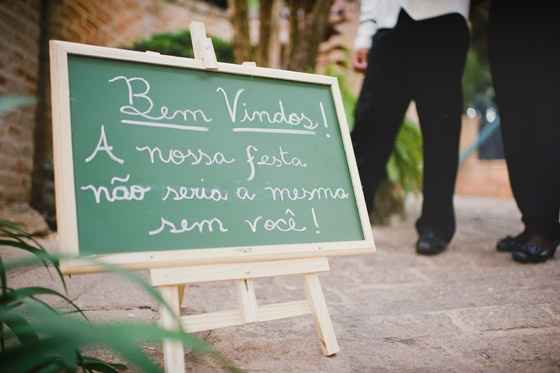 Bem Vindos!
A nossa festa
não seria a mesma
sem você!